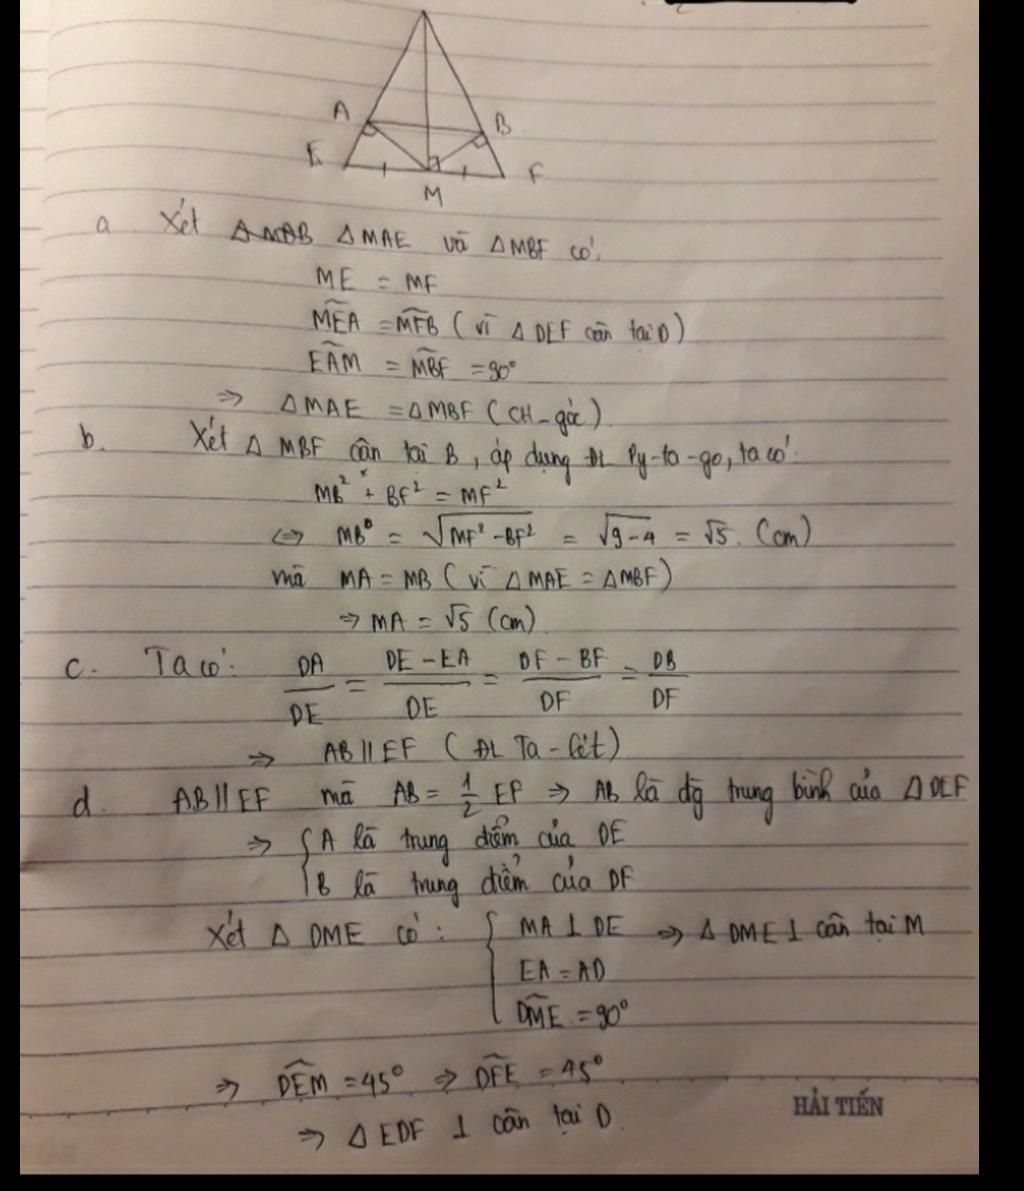 A
B
E
F
M
a. Xét △MAB △MAE và △MBF có:
ME = MF
MEA = MFB (vì △DEF cân tại D)
EAM = MBF = 90°
⇒ △MAE = △MBF (CH-góc)
b. Xét △MBF cân tại B, áp dụng ĐL Py-ta-go, ta có:
MB² + BF² = MF²
⇔ MB = √(MF² - BF²) = √(9-4) = √5 (cm)
mà MA = MB (vì △MAE = △MBF)
⇒ MA = √5 (cm)
c. Ta có: DA/DE = (DE - EA)/DE = (DF - BF)/DF = DB/DF
⇒ AB // EF (ĐL Ta-lét)
d. AB // EF mà AB = 1/2 EF ⇒ AB là đg trung bình của △DEF
⇒ { A là trung điểm của DE
B là trung điểm của DF
Xét △DME có: { MA ⊥ DE ⇒ △DME ⊥ cân tại M
EA = AD
DME = 90°
⇒ DEM = 45° ⇒ DFE = 45°
HẢI TIẾN
⇒ △EDF ⊥ cân tại D.